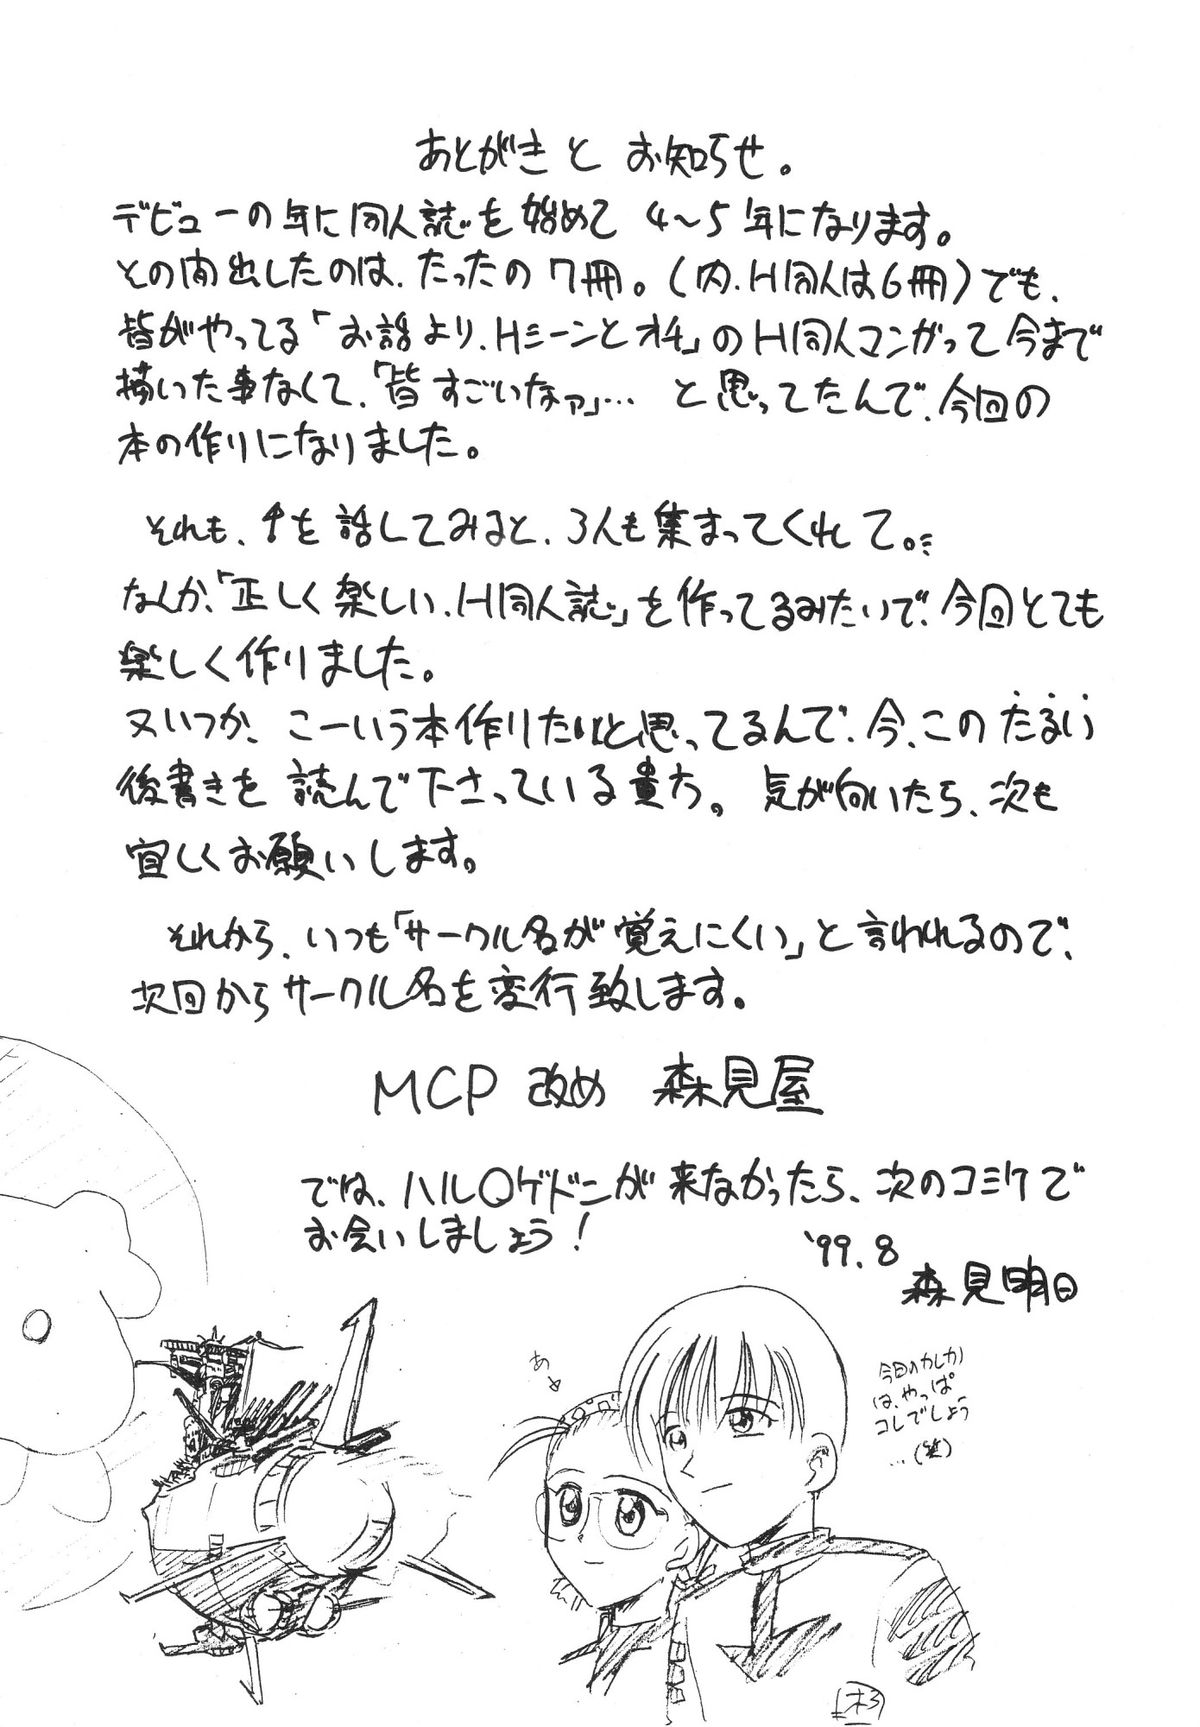 あとがきと お知らせ。
デビューの年に同人誌を始めて 4〜5年になります。
その間出したのは、たったの7冊。(内、H同人は6冊)でも、
皆がやってる「お話より、Hシーンとオチ」のH同人マンガって今まで
描いた事なくて、「皆すごいなァ」… と思ってたんで、今回の
本の作りになりました。
それも、↑を話してみると、3人も集まってくれて。…
なんか、「正しく楽しい、H同人誌」を作ってるみたいで、今回とても
楽しく作りました。
又いつか、こーいう本作りたいと思ってるんで、今、このたるい
後書きを読んで下さっている貴方。気が向いたら、次も
宜しくお願いします。
それから、いつも「サークル名が覚えにくい」と言われるので、
次回からサークル名を変行致します。
MCP 改め 森見屋
では、ハル○ゲドンが来なかったら、次のコミケで
お会いしましょう!
'99.8
森見明日
あ
今回のカレカ
は、やっぱ
コレでしょう
…(笑)